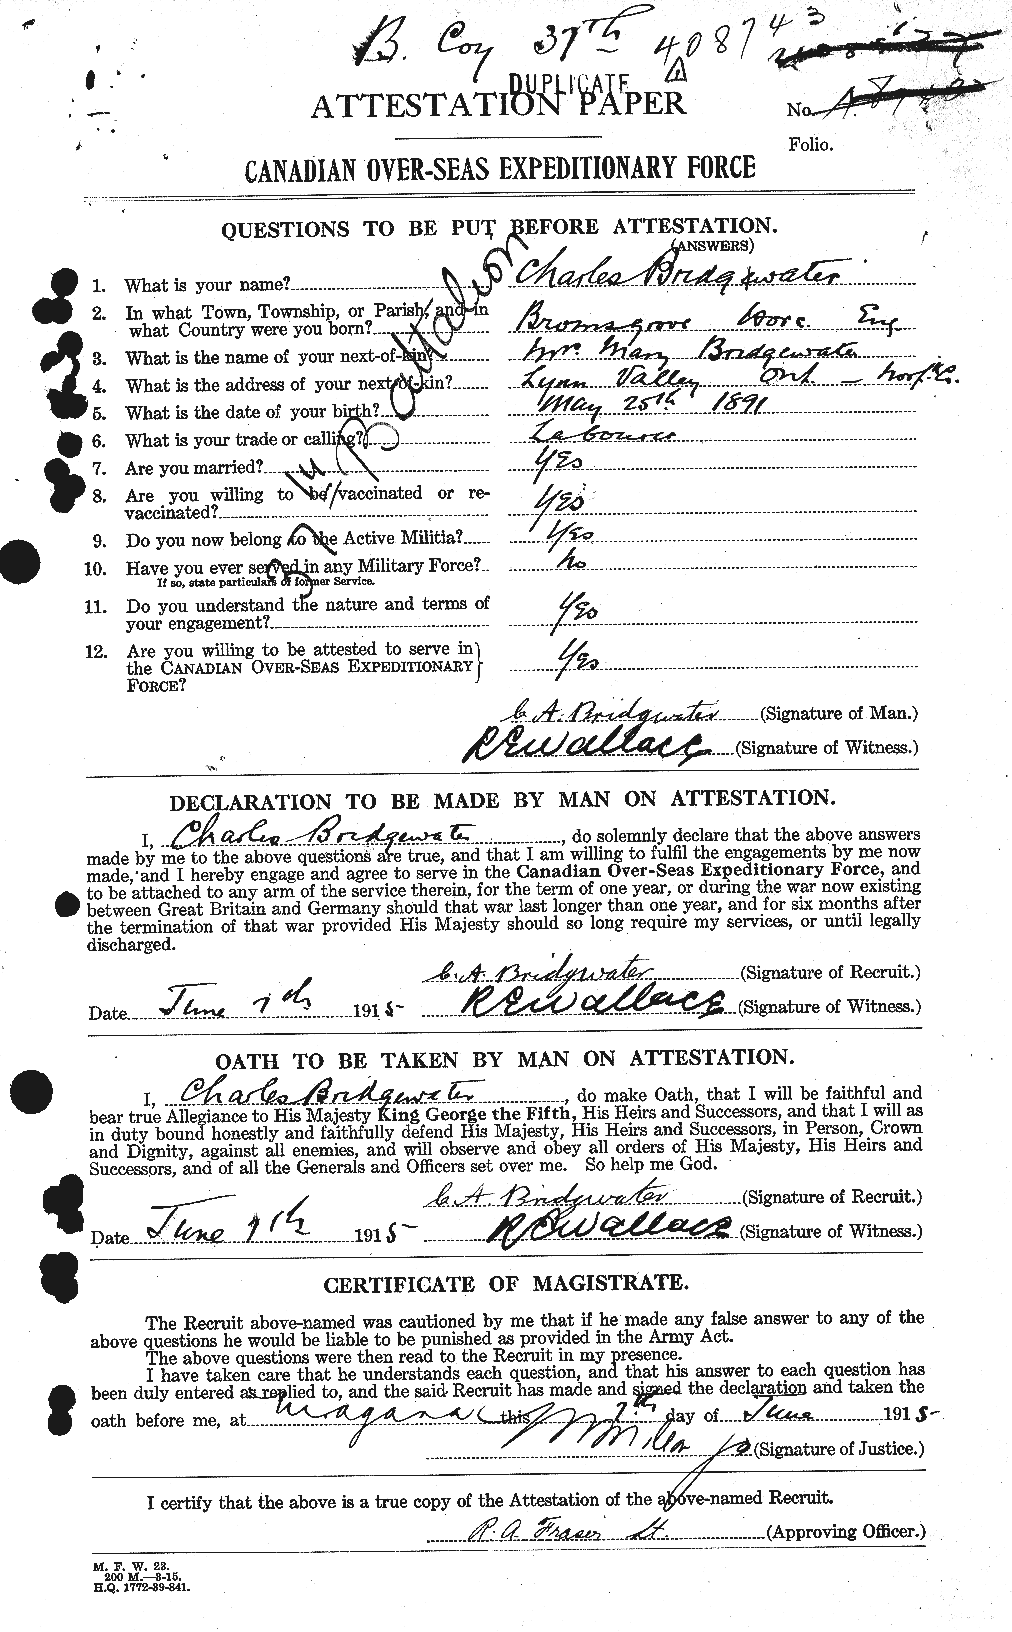 B. Coy 37th 408743
DUPLICATE
ATTESTATION PAPER
No.
Folio.
CANADIAN OVER-SEAS EXPEDITIONARY FORCE
QUESTIONS TO BE PUT BEFORE ATTESTATION.
(ANSWERS)
37th Battalion
1. What is your name? Charles Bridgewater
2. In what Town, Township, or Parish, and in
what Country were you born? Bromsgrove Worc. Eng
3. What is the name of your next-of-kin? Mrs. Mary Bridgewater
4. What is the address of your next-of-kin? Lynn Valley Ont - Norf. Co.
5. What is the date of your birth? May 25th 1891
6. What is your trade or calling? Labourer
7. Are you married? Yes
8. Are you willing to be vaccinated or re-
vaccinated? Yes
9. Do you now belong to the Active Militia? Yes
10. Have you ever served in any Military Force? No
If so, state particulars of former Service.
11. Do you understand the nature and terms of
your engagement? Yes
12. Are you willing to be attested to serve in
the CANADIAN OVER-SEAS EXPEDITIONARY
FORCE? Yes
C. A. Bridgwater (Signature of Man.)
R E Wallace (Signature of Witness.)
DECLARATION TO BE MADE BY MAN ON ATTESTATION.
I, Charles Bridgewater, do solemnly declare that the above answers
made by me to the above questions are true, and that I am willing to fulfil the engagements by me now
made, and I hereby engage and agree to serve in the Canadian Over-Seas Expeditionary Force, and
to be attached to any arm of the service therein, for the term of one year, or during the war now existing
between Great Britain and Germany should that war last longer than one year, and for six months after
the termination of that war provided His Majesty should so long require my services, or until legally
discharged.
C. A. Bridgwater (Signature of Recruit.)
Date June 7th 1915 R E Wallace (Signature of Witness.)
OATH TO BE TAKEN BY MAN ON ATTESTATION.
I, Charles Bridgewater, do make Oath, that I will be faithful and
bear true Allegiance to His Majesty King George the Fifth, His Heirs and Successors, and that I will as
in duty bound honestly and faithfully defend His Majesty, His Heirs and Successors, in Person, Crown
and Dignity, against all enemies, and will observe and obey all orders of His Majesty, His Heirs and
Successors, and of all the Generals and Officers set over me. So help me God.
C. A. Bridgwater (Signature of Recruit.)
Date June 7th 1915 R E Wallace (Signature of Witness.)
CERTIFICATE OF MAGISTRATE.
The Recruit above-named was cautioned by me that if he made any false answer to any of the
above questions he would be liable to be punished as provided in the Army Act.
The above questions were then read to the Recruit in my presence.
I have taken care that he understands each question, and that his answer to each question has
been duly entered as replied to, and the said Recruit has made and signed the declaration and taken the
oath before me, at Niagara this 7th day of June 1915
(Signature of Justice.)
I certify that the above is a true copy of the Attestation of the above-named Recruit.
R. A. Fraser Lt. (Approving Officer.)
M. F. W. 23.
200 M.-3-15.
H.Q. 1772-39-841.